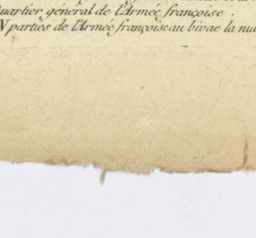 uartier général de l'Armée françoise.
N parties de l'Armée françoise au bivac la nui